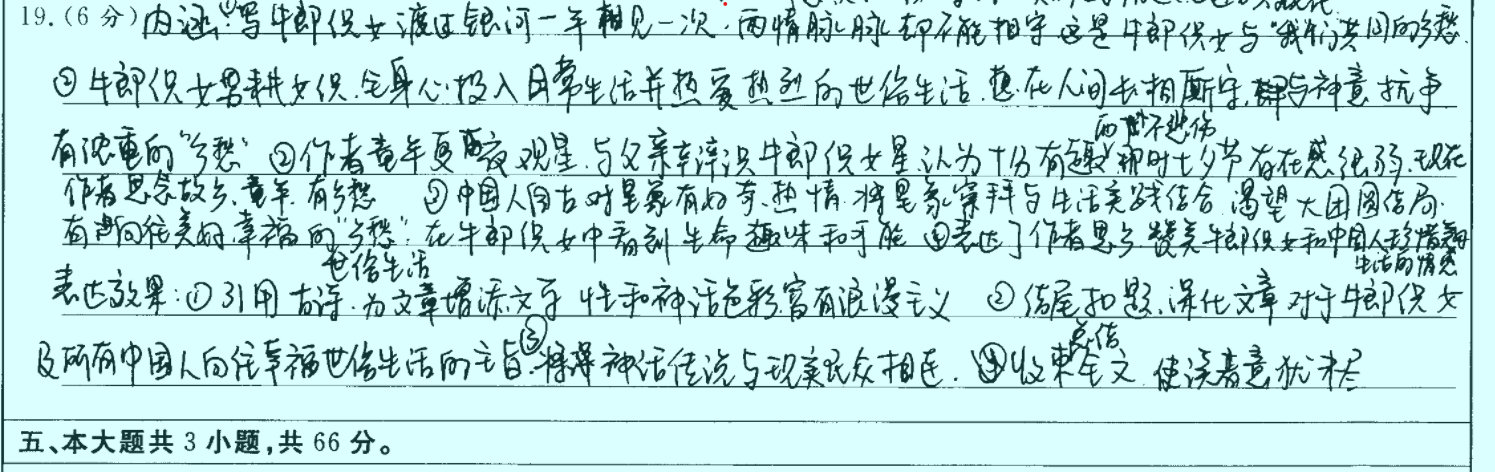 19.(6分)内涵:①写牛郎织女渡过银河一年相见一次,两情脉脉却不能相守这是牛郎织女与"我们共同的乡愁
②牛郎织女男耕女织.全身心投入日常生活并热爱热烈的世俗生活.想在人间长相厮守.与神意抗争
有浓重的"乡愁" ②作者童年夏夜观星.与父亲辛淬识牛郎织女星.认为十分有趣而不悲伤 那时七夕节存在感很弱.现在
作者思念故乡、童年 有乡愁 ③中国人自古对星象有好奇、热情.将星象崇拜与生活实践结合 渴望大团圆结局.
有向往美好、幸福的"乡愁".在牛郎织女中看到生命趣味和可能 ④表达了作者思乡 赞美牛郎织女和中国人珍惜
世俗生活 生活的情感
表达效果:①引用古诗.为文章增添文学性和神话色彩.富有浪漫主义 ②结尾扣题.深化文章对于牛郎织女
及所有中国人向往幸福世俗生活的主旨.③将神话传说与现实民众相连. ④收束总结全文 使读者意犹未尽
五、本大题共 3 小题,共 66 分。